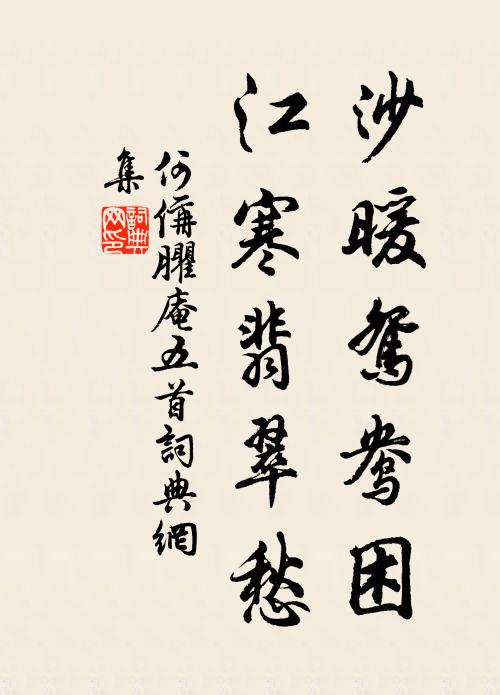 沙暖鴛鴦困
江寒翡翠愁
何偁臞庵五首詞典網
集
詞典
网印